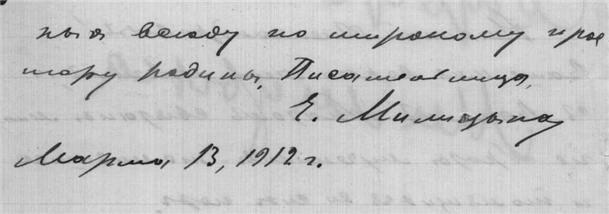 ныя всюду по широкому прос
тору родины. Писательница,
Е. Милицына
Марта 13, 1912 г.